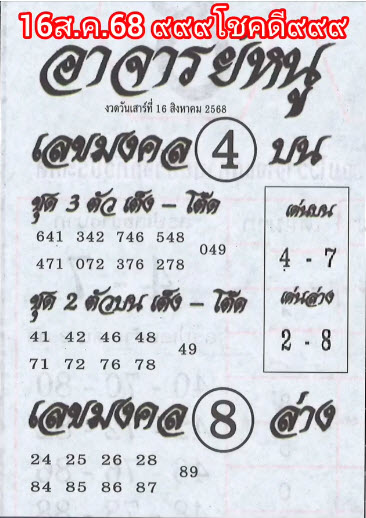 16ส.ค.68 ๙๙๙โชคดี๙๙๙
อาจารย์หนู
งวดวันเสาร์ที่ 16 สิงหาคม 2568
เลขมงคล 4 บน
ชุด 3 ตัว เต็ง – โต๊ด
641 342 746 548
049
471 072 376 278
เด่นบน
4 - 7
ชุด 2 ตัวบน เต็ง – โต๊ด
41 42 46 48
49
71 72 76 78
เด่นล่าง
2 - 8
เลขมงคล 8 ล่าง
24 25 26 28
89
84 85 86 87